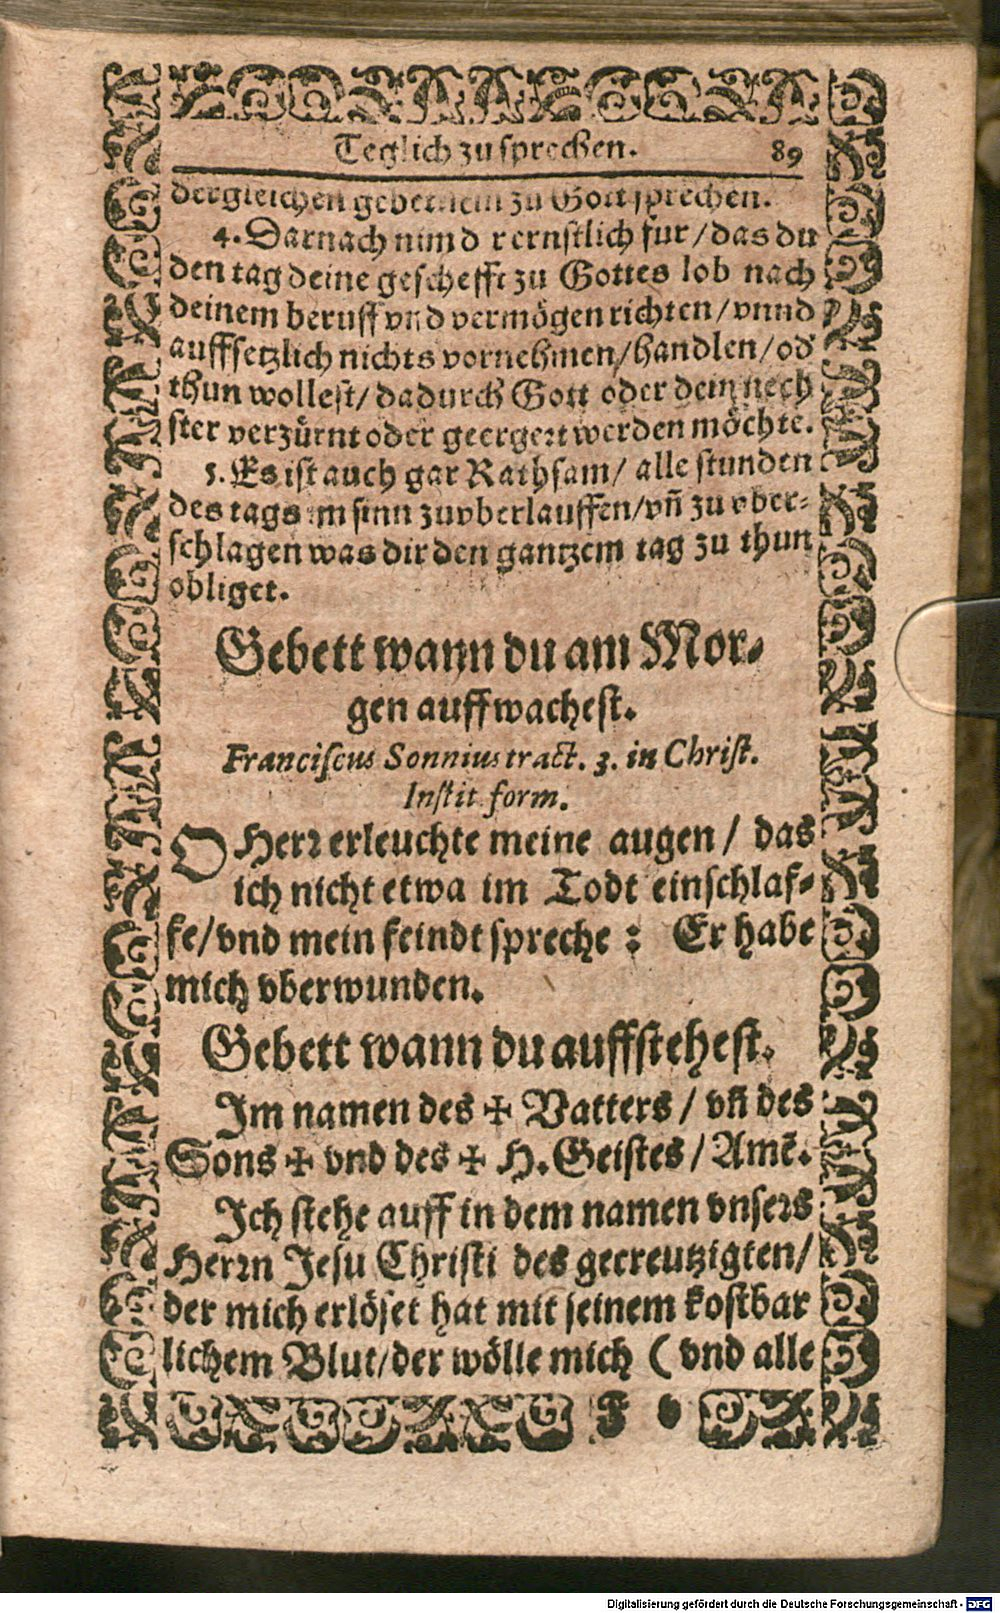 Teglich zu sprechen. 89
dergleichen gebetlein zu Gott sprechen.
4. Darnach nim dir ernstlich für / das du
den tag deine geschefft zu Gottes lob nach
deinem beruff vnd vermögen richten / vnnd
auffsetzlich nichts vornehmen / handlen / od
thun wollest / dadurch Gott oder dein nech
ster verzürnt oder geergert werden möchte.
5. Es ist auch gar Rathsam / alle stunden
des tags im sinn zuvberlauffen / vñ zu vber-
schlagen was dir den gantzem tag zu thun
obliget.
Gebett wann du am Mor-
gen auffwachest.
Franciscus Sonnius tract. 3. in Christ.
Instit. form.
O Herr erleuchte meine augen / das
ich nicht etwa im Todt einschlaf-
fe / vnd mein feindt spreche : Er habe
mich vberwunden.
Gebett wann du auffstehest.
Im namen des ✠ Vatters / vñ des
Sons ✠ vnd des ✠ H. Geistes / Amẽ.
Ich stehe auff in dem namen vnsers
Herrn Jesu Christi des gecreutzigten /
der mich erlöset hat mit seinem kostbar
lichem Blut / der wölle mich ( vnd alle
Digitalisierung gefördert durch die Deutsche Forschungsgemeinschaft - DFG